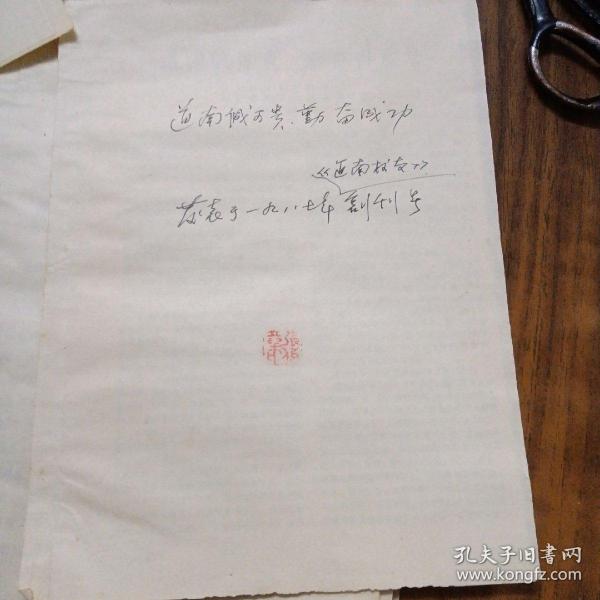 道南诚可贵、勤奋成功
《道南校友》
发表于一九八七年创刊号
孔夫子旧书网
www.kongfz.com